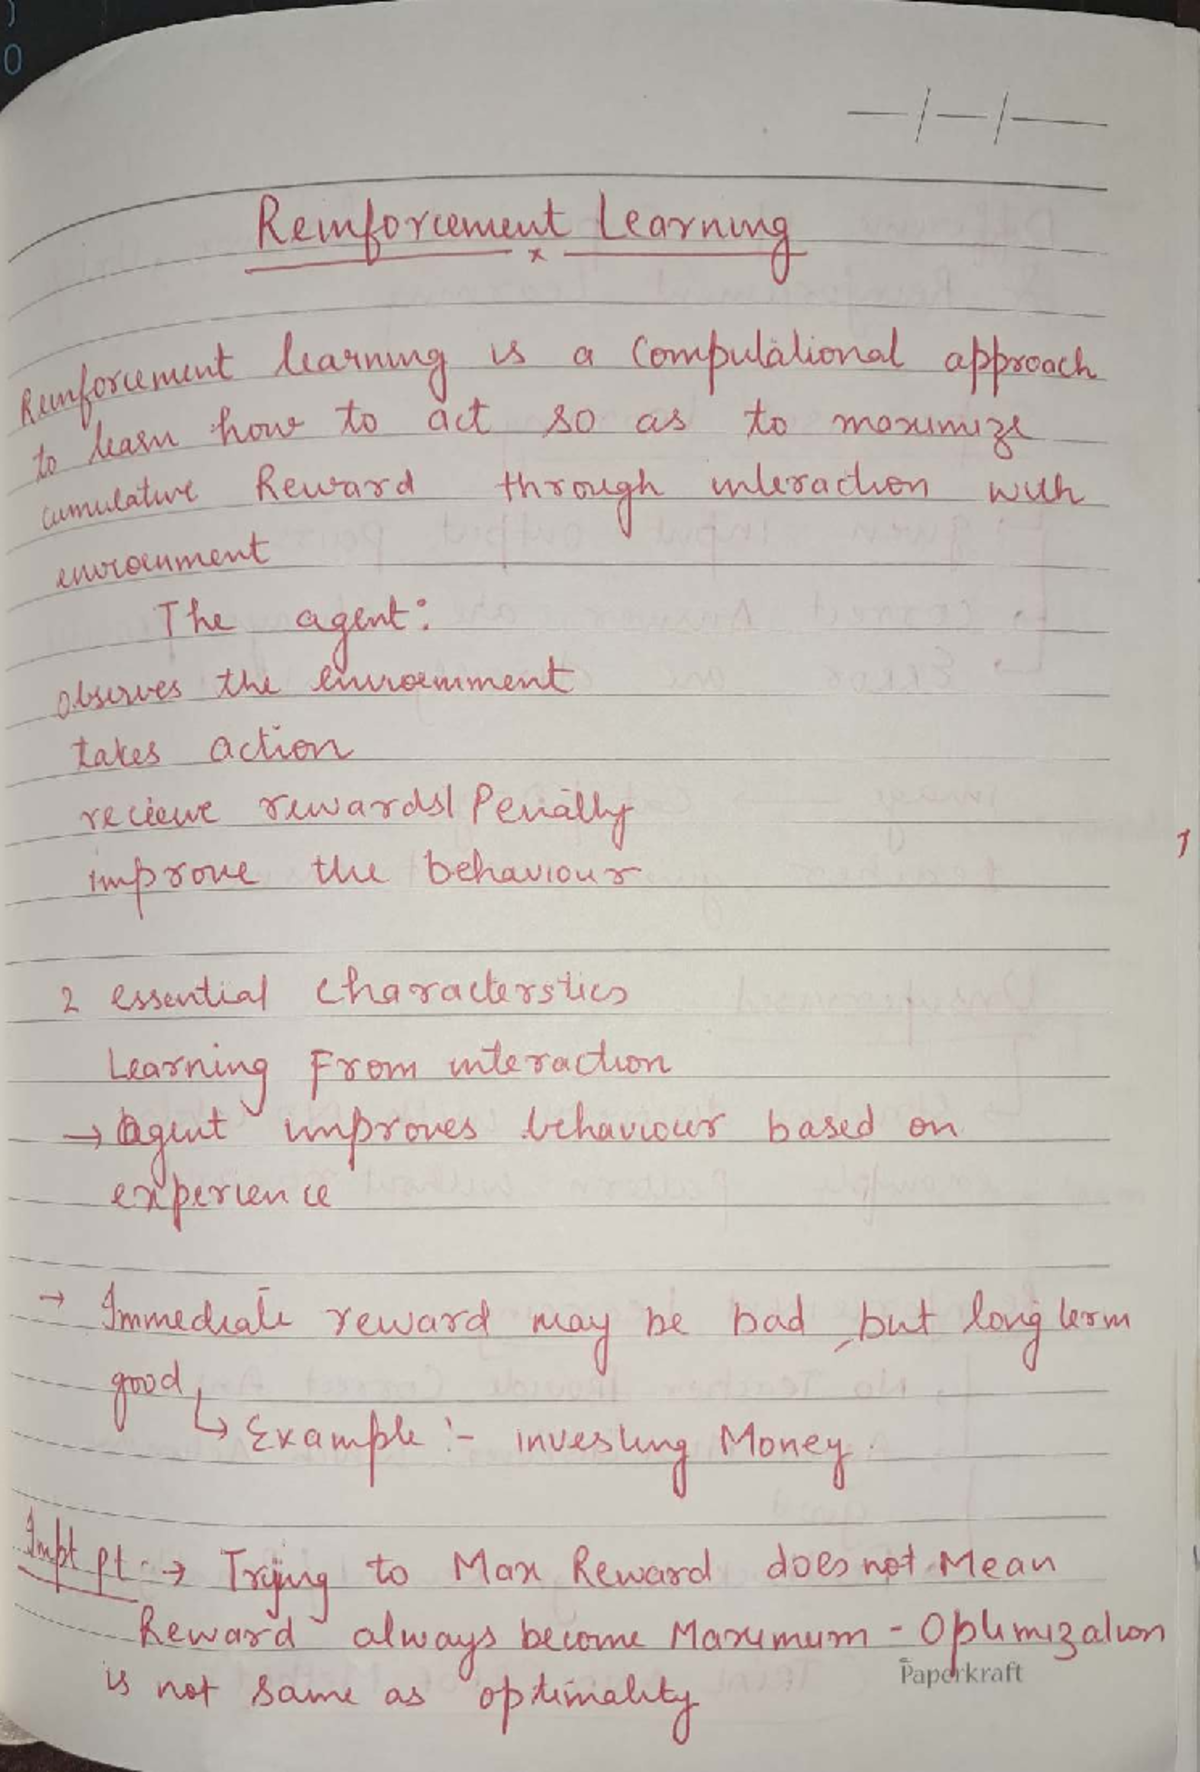 Reinforcement Learning
x
Reinforcement learning is a Computational approach
to learn how to act so as to maximize
cumulative Reward through interaction with
enviroenment
The agent:
observes the enviroenmment
takes action
recieve rewards/Penalty
improve the behaviour
2 essential characterstics
Learning From interaction
→ agent improves behaviour based on
experience
→ Immediate reward may be bad, but long term
good,
↳ Example :- investing Money.
Impt pt. → Trying to Max Reward does not Mean
Reward always become Maximum - Optimization
is not same as optimality
Paperkraft